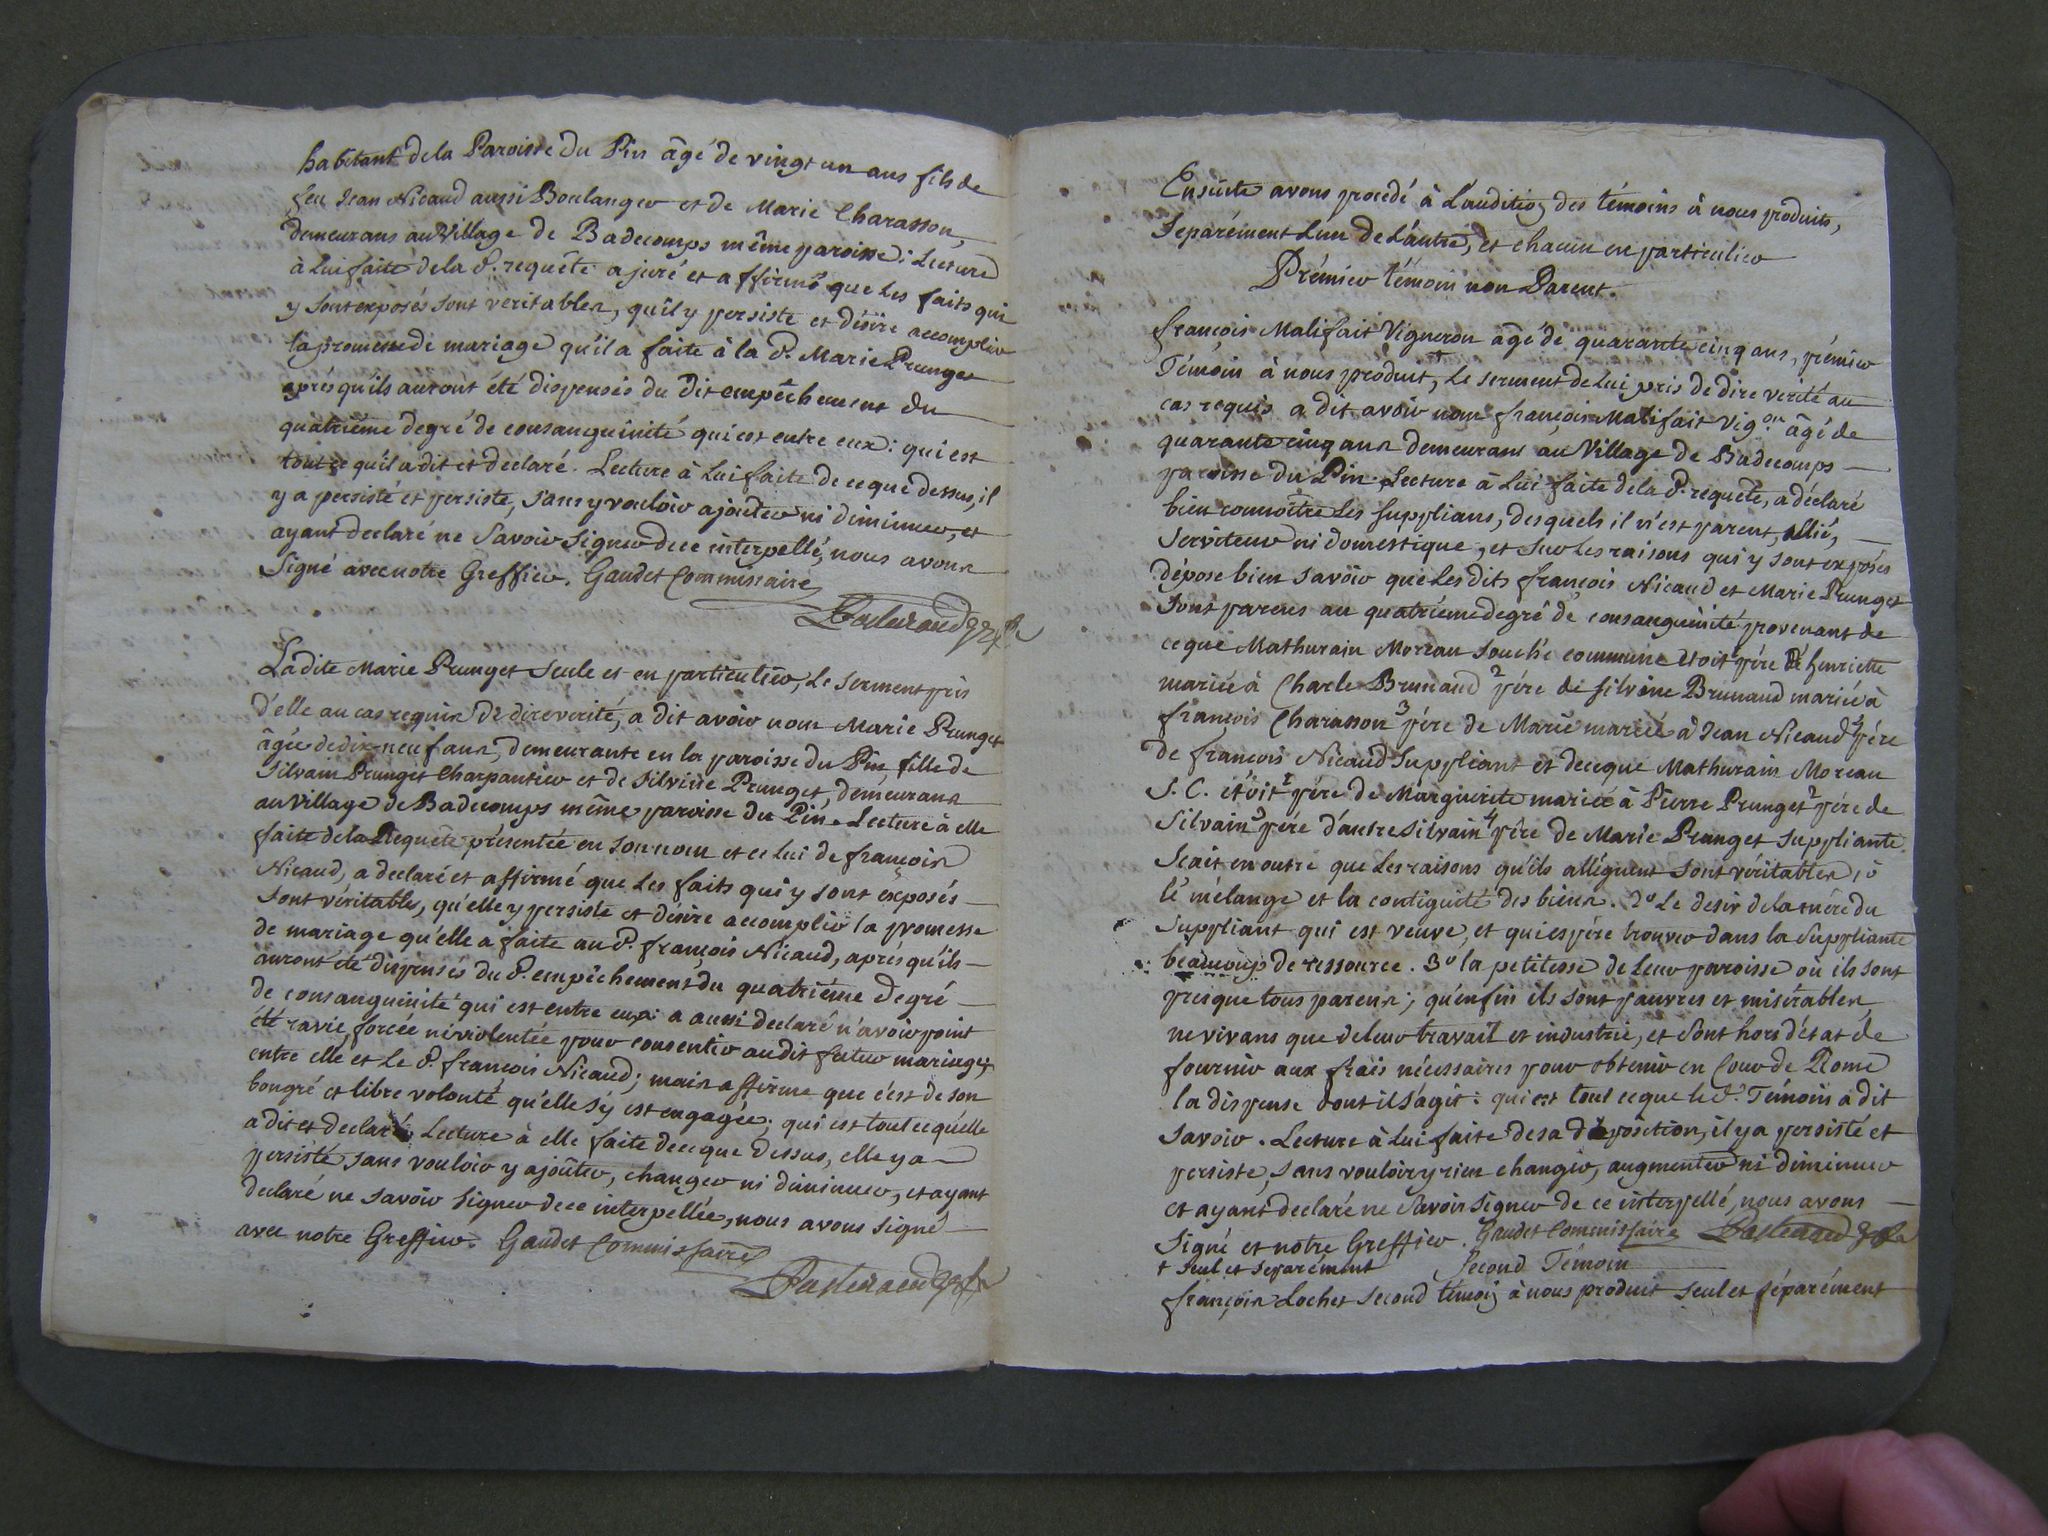 habitant de la Paroisse du Pin âgé de vingt un ans fils de
feu Jean Nicaud aussi Boulanger et de Marie Charasson,
demeurans au Village de Badecomps même paroisse : Lecture
à lui faite de la d. requête a juré et affirmé que les faits qui
y sont exposés sont veritables, qu'il y persiste et désire accomplir
la promesse de mariage qu'il a faite à la d. Marie Prunget
après qu'ils auront été dispensés du dit empêchement du
quatrième degré de consanguinité qui est entre eux : qui est
tout ce qu'il a dit et declaré. Lecture à lui faite de ce que dessus, il
y a persisté et persiste, sans y vouloir ajoûter ni diminuer, et
ayant declaré ne Savoir Signer de ce interpellé, nous avons
Signé avec notre Greffier. Gaudet Commissaire
Ladite Marie Prunget Seule et en particulier, le serment pris
d'elle au cas requis de dire verité, a dit avoir nom Marie Prunget
âgée de dix-neuf ans, demeurante en la paroisse du Pin, fille de
Silvain Prunget Charpantier et de Silvine Prunget, demeurans
au Village de Badecomps même paroisse du Pin. Lecture à elle
faite de la Requête présentée en son nom et celui de françois
Nicaud, a declaré et affirmé que les faits qui y sont exposés
sont véritables, qu'elle y persiste et désire accomplir la promesse
de mariage qu'elle a faite au d. françois Nicaud, après qu'ils
auront été dispensés du d. empêchement du quatrième degré
de consanguinité qui est entre eux : a aussi declaré n'avoir point
été ravie, forcée ni violentée pour consentir au dit futur mariage
entre elle et le d. françois Nicaud ; mais affirme que c'est de son
bongré et libre volonté qu'elle s'y est engagée ; qui est tout ce qu'elle
a dit et declaré Lecture à elle faite de ce que dessus, elle y a
persisté sans vouloir y ajoûter, changer ni diminuer, et ayant
declaré ne savoir signer de ce interpellée, nous avons signé
avec notre Greffier. Gaudet Commissaire
Ensuite avons procédé à L'audition des témoins à nous produits,
Separément L'un de L'autre, et chacun en particulier
Prémier témoin non Parent.
françois Malifait Vigneron âgé de quarante cinq ans, prémier
Témoin à nous produit, + le serment de lui pris de dire verité au
cas requis a dit avoir nom françois Malifait Vig.on âgé de
quarante cinq ans demeurans au Village de Badecomps
paroisse du Pin. Lecture à lui faite de la d. requête, a déclaré
bien connoître les supplians, desquels il n'est parent, allié,
serviteur ni domestique, et sur les raisons qui y sont exposés
dépose bien savoir que les dits françois Nicaud et Marie Prunget
sont parens au quatrième degré de consanguinité provenant de
ce que Mathurain Moreau souche commune étoit 1 père de henriette
mariée à Charle Brunaud 2 père de Silvine Brunaud mariée à
françois Charasson 3 père de Marie mariée à Jean Nicaud 4 père
de françois Nicaud Suppliant et de ce que Mathurain Moreau
S. C. étoit 1 père de Marguerite mariée à Pierre Prunget 2 père de
Silvain 3 père d'autre Silvain 4 père de Marie Prunget suppliante
Scait en outre que les raisons qu'ils alléguent sont véritables, 1º
le mélange et la contiguité des biens. 2º Le desir de la mère du
Suppliant qui est veuve, et qui espère trouver dans la Suppliante
beaucoup de ressource. 3º la petitesse de leur paroisse où ils sont
presque tous parens ; qu'enfin ils sont pauvres et misérables
ne vivans que de leur travail et industrie, et sont hors d'état de
fournir aux frais nécessaires pour obtenir en Cour de Rome
la dispense dont il s'agit : qui est tout ce que le d. Témoin a dit
savoir. Lecture à lui faite de sa déposition, il y a persisté et
persiste, sans vouloir y rien changer, augmenter ni diminuer
et ayant declaré ne Savoir Signer de ce interpellé, nous avons
Signé et notre Greffier. Gaudet Commissaire
+ seul et separément Second Témoin
françois Lochet second témoin à nous produit seul et séparément